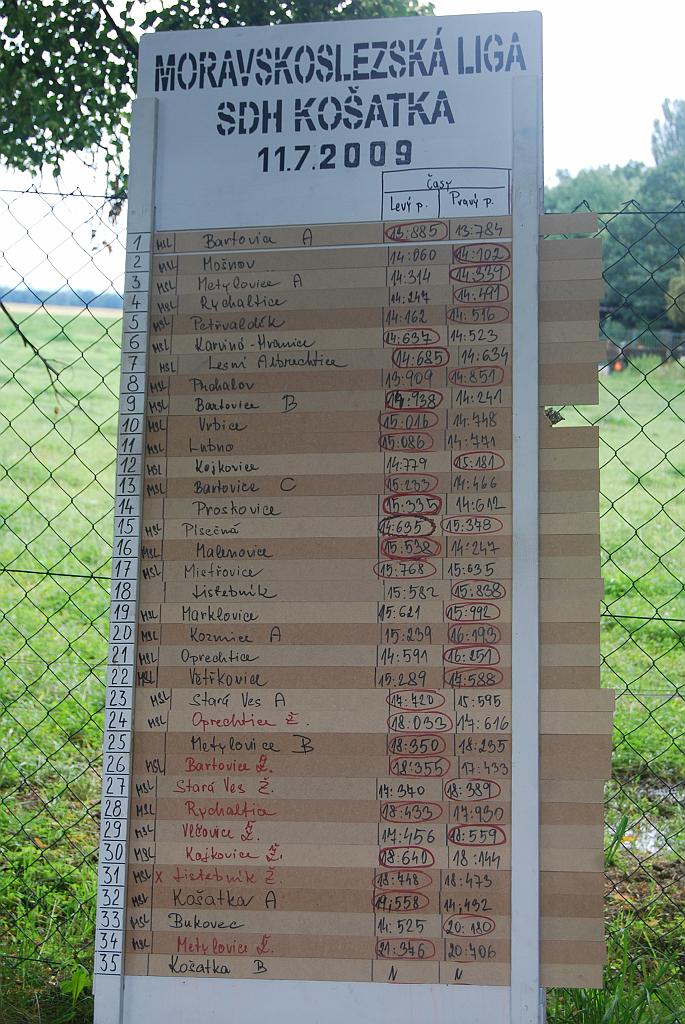 MORAVSKOSLEZSKÁ LIGA
SDH KOŠATKA
11.7.2009
Časy
Levý p. Pravý p.
1 MSL Bartovice A 13:885 13:784
2 MSL Mošnov 14:060 14:102
3 MSL Metylovice A 14:314 14:339
4 MSL Rychaltice 14:247 14:491
5 MSL Petřvaldík 14:162 14:516
6 MSL Karviná-Hranice 14:637 14:523
7 MSL Lesní Albrechtice 14:685 14:634
8 MSL Puchalov 13:909 14:851
9 MSL Bartovice B 14:938 14:241
10 MSL Vrbice 15:016 14:748
11 MSL Lubno 15:086 14:771
12 MSL Kajkovice 14:779 15:181
13 MSL Bartovice C 15:233 14:466
14 Proskovice 15:335 14:612
15 MSL Písečná 14:635 15:378
16 MSL Malenovice 15:538 14:247
17 MSL Mistřovice 15:768 15:635
18 Jistebník 15:582 15:838
19 MSL Marklovice 15:621 15:992
20 MSL Kozmice A 15:239 16:193
21 MSL Oprechtice 14:591 16:251
22 MSL Větřkovice 15:289 17:588
23 MSL Stará Ves A 17:720 15:595
24 MSL Oprechtice Ž. 18:033 17:616
25 Metylovice B 18:350 18:235
26 MSL Bartovice Ž. 18:355 17:433
27 MSL Stará Ves Ž. 17:340 18:389
28 MSL Rychaltice 18:433 17:930
29 MSL Vlčovice Ž. 17:456 18:559
30 MSL Kajkovice Ž. 18:640 18:144
31 MSL X Jistebník Ž. 18:748 18:473
32 MSL Košatka A 19,558 14,492
33 MSL Bukovec 14:525 20:180
34 MSL Metylovice Ž. 21:346 20:706
35 Košatka B N N